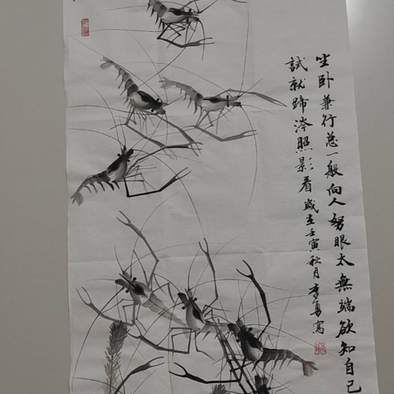 坐卧兼行总一般向人努眼太無端欲知自己
試就蹄涔照影看歲在壬寅秋月李勇寫